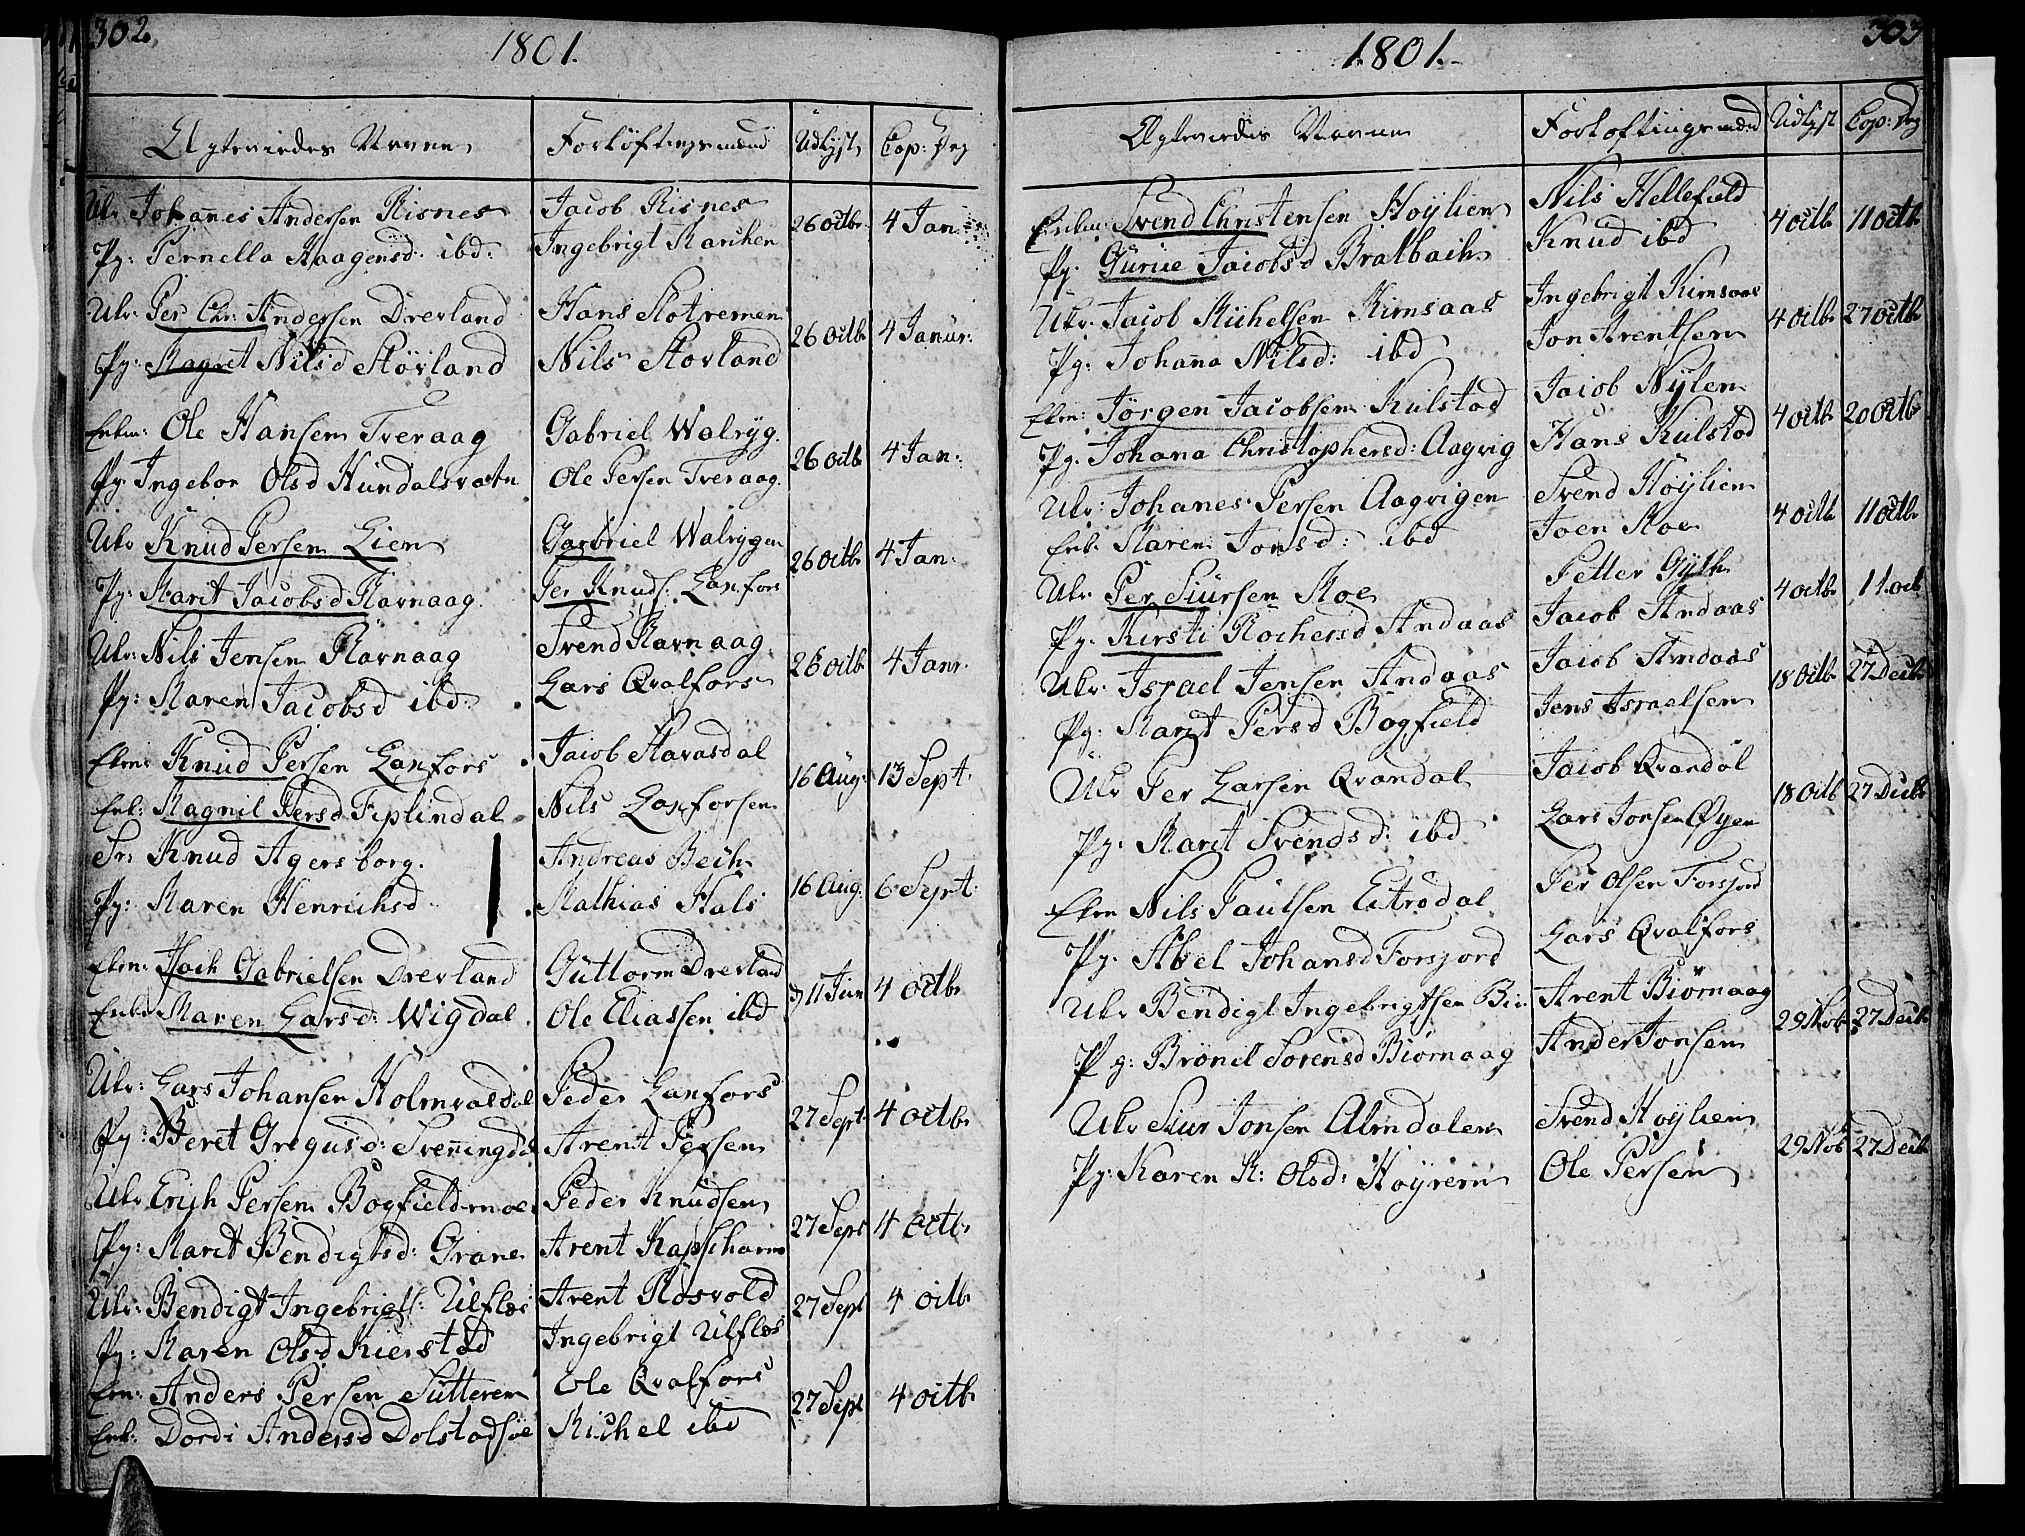 302.
1801.
Ægtevierdes Navne
Forlöftingsmænd
Udlyst
Cop: Dag
Ukr Johañes Andersen Risnes
Jacob Risnes
26 Octbr
4 Jan:
Pg: Pernella Haagensd: ibd:
Ingebrigt Marchen
Ukr: Per Chr: Andersen Drevland
Hans Slotremen
26 Octbr
4 Janur:
Pg: Magret Nilsd Störland
Nils Storland
Enkm: Ole Hansen Tveraag
Gabriel Walryg.
26 Octb
4 Jan:
Pg: Ingebor Olsd Hundalsvatn
Ole Persen Tveraag
Ukr Knud Persen Lien
Gabriel Walrygen
26 Octbr
4 Jan:
Pg: Marit Jacobsd Ravnaag.
Per Knuds: Laxfors
Ukr: Nils Jensen Ravnaag
Svend Ravnaag
26 Octbr
4 Janr.
Pg: Maren Jacobsd ibd:
Lars Qvalfors
Ekm: Knud Persen Laxfors
Jacob Stavasdal
16 Aug:
13 Sept.
Enk: Magnil Persd Fiplindal
Nils Laxforsen
Sr: Knud Agersborg.
Andreas Bech
16 Aug.
6 Sept:
Pg: Maren Henrichsd
Mathias Hals
Ekm: Isach Gabrielsen Drevland
Guttorm Drevland
11 Jun
4 Octbr
Enke Maren Larsd: Wigdal
Ole Eliassen ibd
Ukr: Lars Johansen Holmvasdal
Peder Laxfors
27 Sept:
4 Octbr
Pg: Beret Gregusd: Sveñingdal
Arent Persen
Ukr Erich Persen Bogfieldmoe
Peder Knudsen
27 Sept
4 Octbr
Pg: Marit Bendigtsd: Grane
Arent Kapskarmo
Ukr: Bendigt Ingebrigts: Ulfles
Arent Rosvold
27 Sept
4 Octbr
Pg: Maren Olsd Kierstad
Ingebrigt Ulfles
Ekm: Anders Persen Sutterem
Ole Qvalfors
27 Sept
4 Octbr
Enk: Dordi Andersd Dolstadsöe
Michel ibd
303
1801.
Ægtevierdes Navne
Forloftingsmænd
Udlyst
Cop: Dag
Enkm: Svend Christensen Höylien
Nils Hellefield
4 Octbr
11 Octb
Pg. Gurue Jacobsd Bratbach
Knud ibd
Ukr: Jacob Michelsen Kimsaas
Ingebrigt Kimsaas
4 Octbr
27 Octbr
Pg: Johaña Nilsd: ibd
Jon Arentsen
Ekm: Jörgen Jacobsen Kulstad
Jacob Nylen
4 Octbr
20 Octb
Pg: Johana Christophersd: Aagvig
Hans Kulstad
Ukr: Johanes Persen Aagvigen
Svend Höylien
4 Octbr
11 Octbr
Enk: Maren Jonsd: ibd
Joen Moe
Ukr: Per Siursen Moe
Petter Gyth
4 Octbr
11 Octb
Pg: Kirsti Mochersd Andaas
Jacob Andaas
Ukr: Israel Jensen Andaas
Jacob Andaas
18 Octbr
27 Decbr
Pg: Marit Persd Bogfield
Jens Israelsen
Ukr Per Larsen Qvandal
Jacob Qvandal
18 Octb
27 Decbr
Pg: Marit Svendsd: ibd
Lars Jonsen Øyen
Ekm Nils Paulsen Eiterodal
Per Olsen Forsjord
Pg: Abel Johansd Forsjord
Lars Qvalfors
Ukr Bendigt Ingebrigtsen Bi:
Arent Biornaag
29 Nob
27 Decbr
Pg: Brönil Sorensd Biornaag
Ander Jonsen
Ukr Siur Jonsen Almdalen
Svend Höylien
29 Nob
27 Decbr
Pg: Karen K: Olsd: Höyrem
Ole Persen